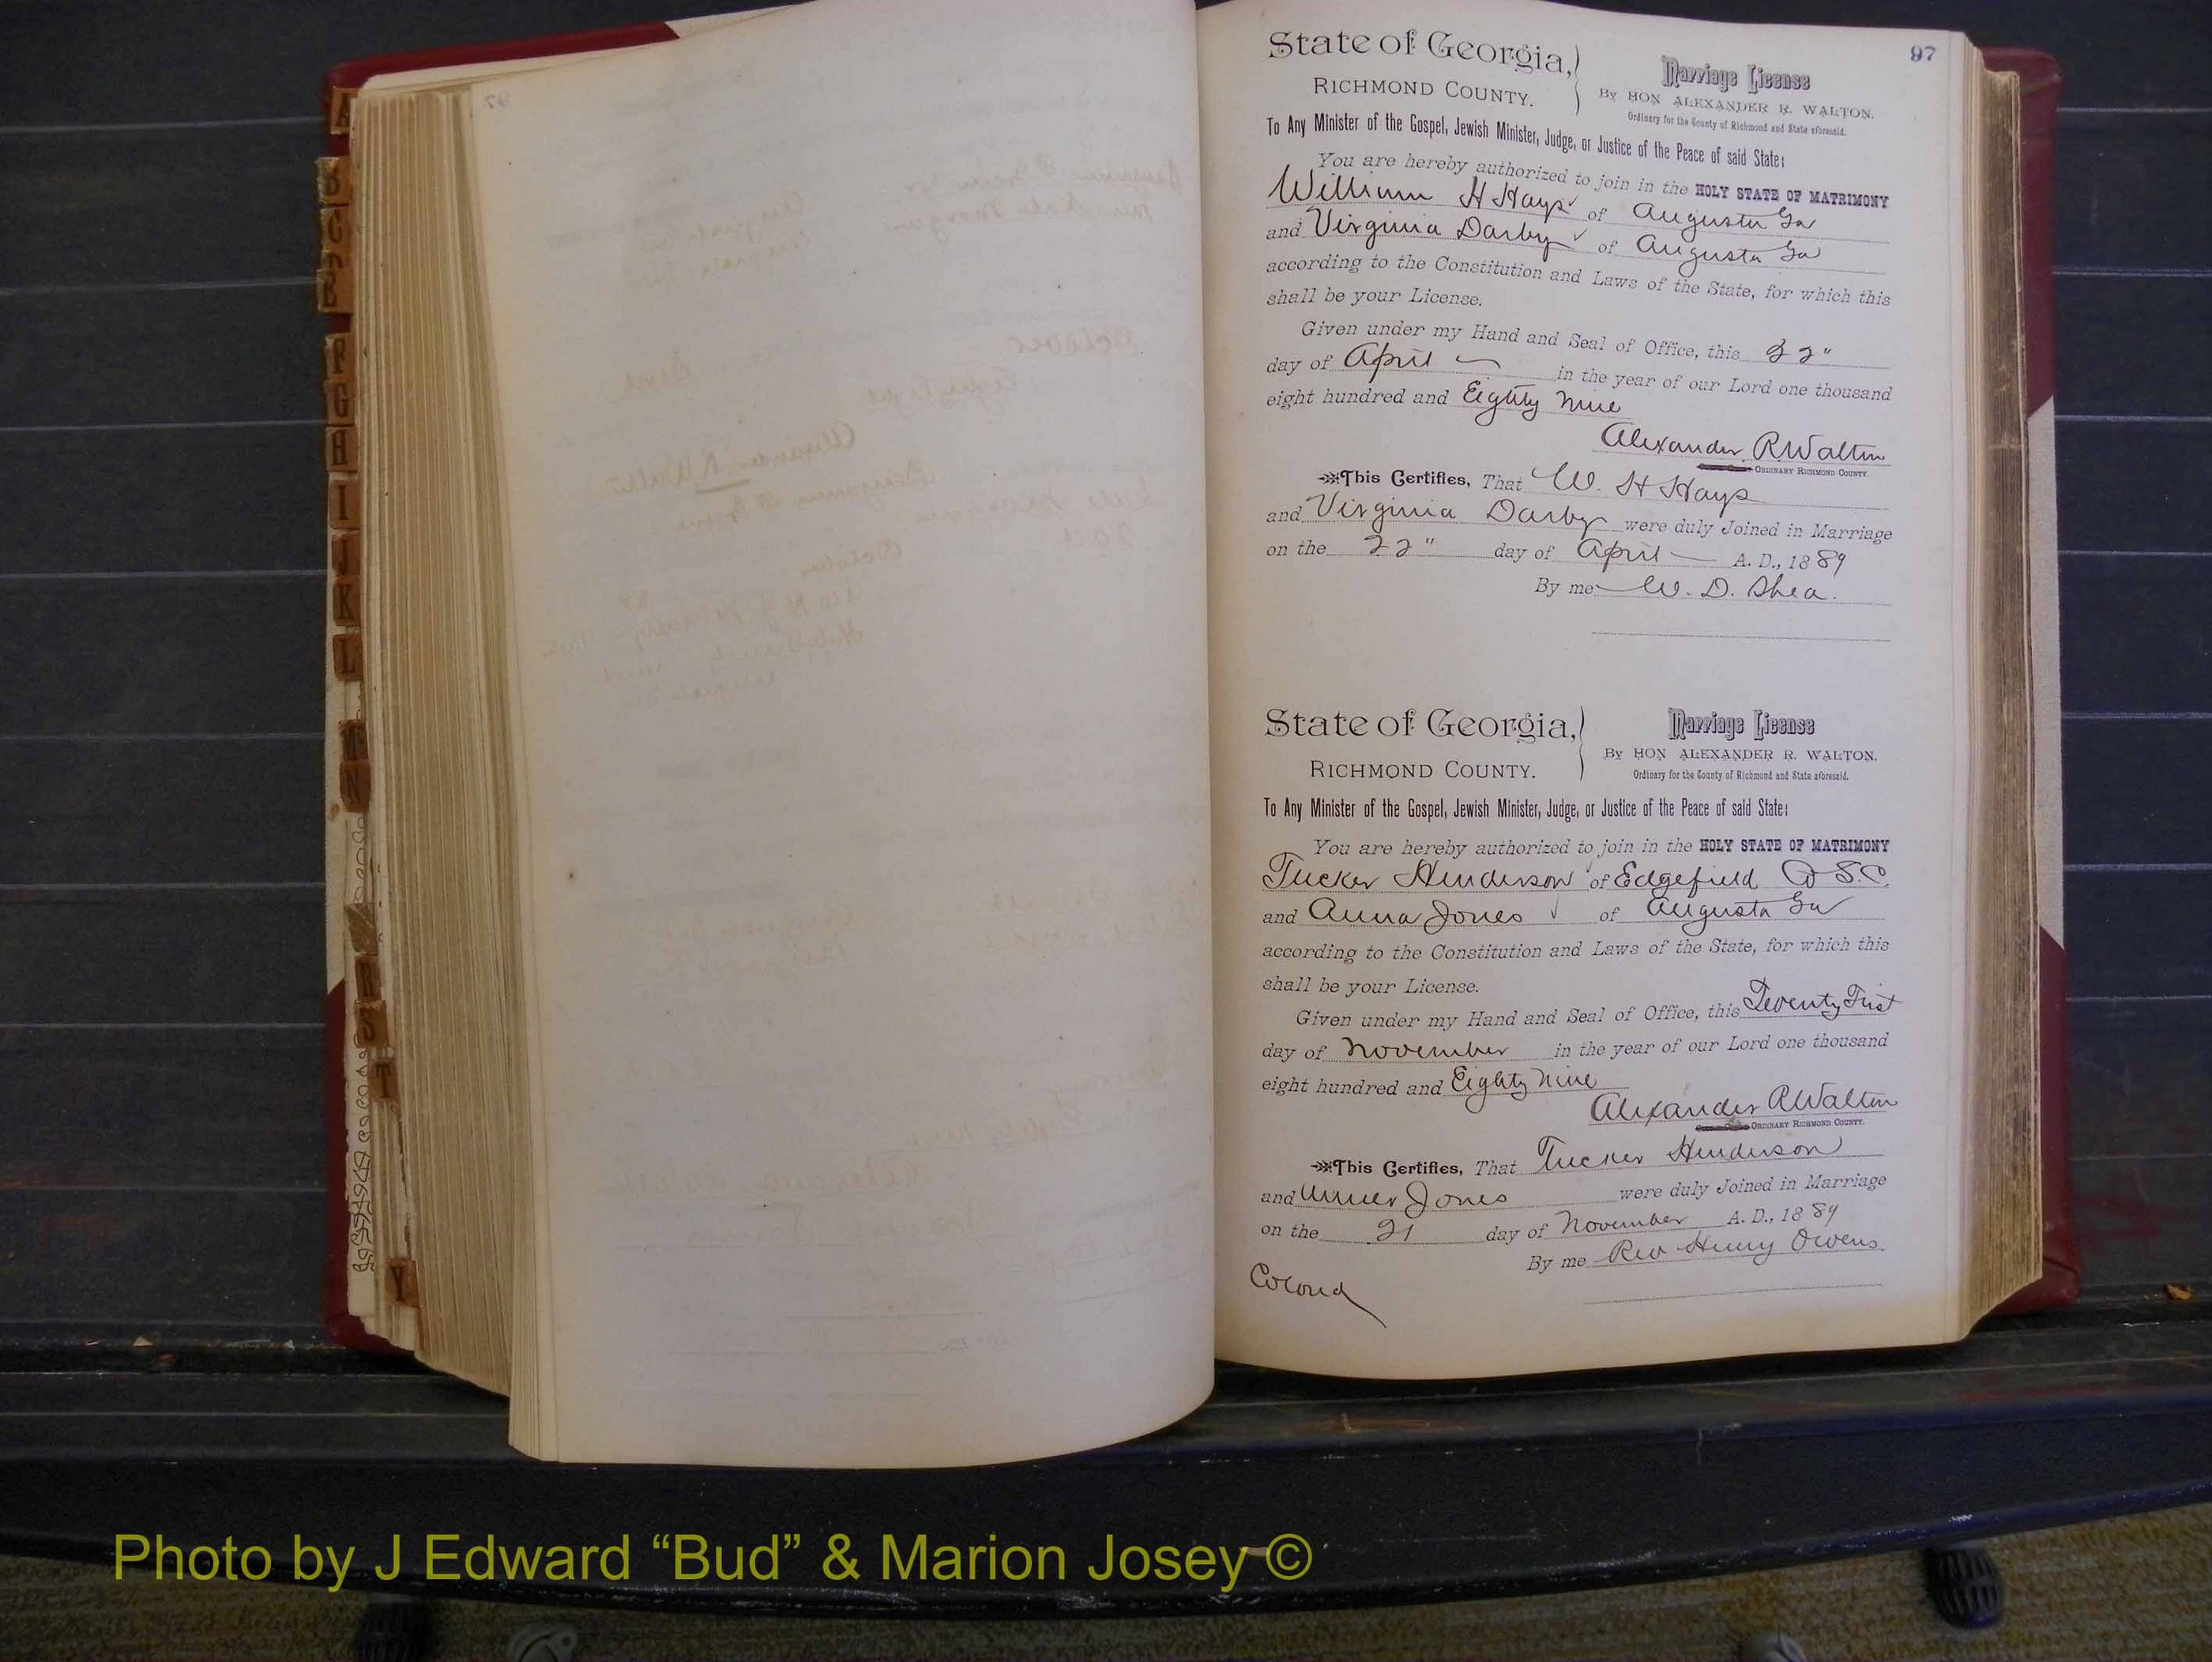 97
State of Georgia,
RICHMOND COUNTY.
Marriage License
By HON ALEXANDER R. WALTON.
Ordinary for the County of Richmond and State aforesaid.
To Any Minister of the Gospel, Jewish Minister, Judge, or Justice of the Peace of said State:
You are hereby authorized to join in the HOLY STATE OF MATRIMONY
William H Hays of Augusta Ga
and Virginia Darby of Augusta Ga
according to the Constitution and Laws of the State, for which this
shall be your License.
Given under my Hand and Seal of Office, this 22"
day of April in the year of our Lord one thousand
eight hundred and Eighty Nine
Alexander R Walton
ORDINARY RICHMOND COUNTY.
This Certifies, That W. H Hays
and Virginia Darby were duly Joined in Marriage
on the 22" day of April A. D., 1889
By me W. D. Shea.
State of Georgia,
RICHMOND COUNTY.
Marriage License
By HON ALEXANDER R. WALTON.
Ordinary for the County of Richmond and State aforesaid.
To Any Minister of the Gospel, Jewish Minister, Judge, or Justice of the Peace of said State:
You are hereby authorized to join in the HOLY STATE OF MATRIMONY
Tucker Henderson of Edgefield S.C.
and Anna Jones of Augusta Ga
according to the Constitution and Laws of the State, for which this
shall be your License.
Given under my Hand and Seal of Office, this Twenty First
day of November in the year of our Lord one thousand
eight hundred and Eighty Nine
Alexander R Walton
ORDINARY RICHMOND COUNTY.
This Certifies, That Tucker Henderson
and Jones were duly Joined in Marriage
on the 21 day of November A. D., 1889
By me Rev Henry Owens
Colored
A
B
C
F
G
H
I
J
K
L
M
N
R
S
T
Y
Photo by J Edward “Bud” & Marion Josey ©